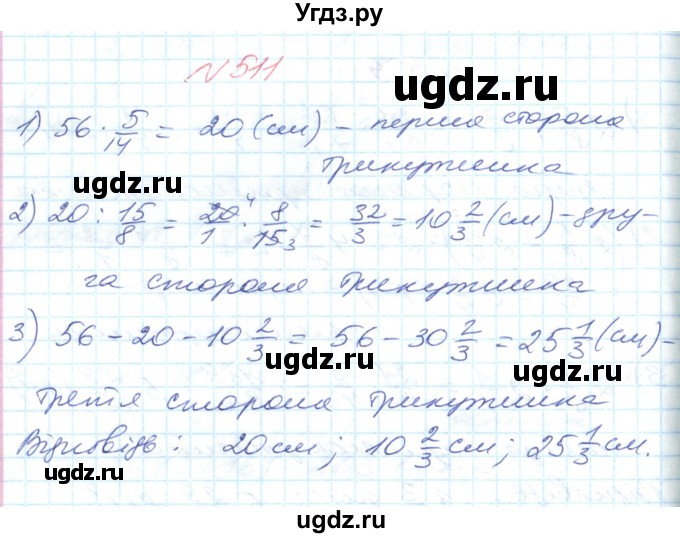 Угдз.ру
№ 511
1) 56 · 5/14 = 20 (см) – перша сторона
трикутника
2) 20 : 15/8 = 20/1 4 · 8/15 3 = 32/3 = 10 2/3 (см) – дру-
га сторона трикутника
3) 56 – 20 – 10 2/3 = 56 – 30 2/3 = 25 1/3 (см) –
третя сторона трикутника
Відповідь: 20 см; 10 2/3 см; 25 1/3 см.
ugdz.ru
ugdz.ru
ugdz.ru
ugdz.ru
ugdz.ru
ugdz.ru
ugdz.ru
ugdz.ru